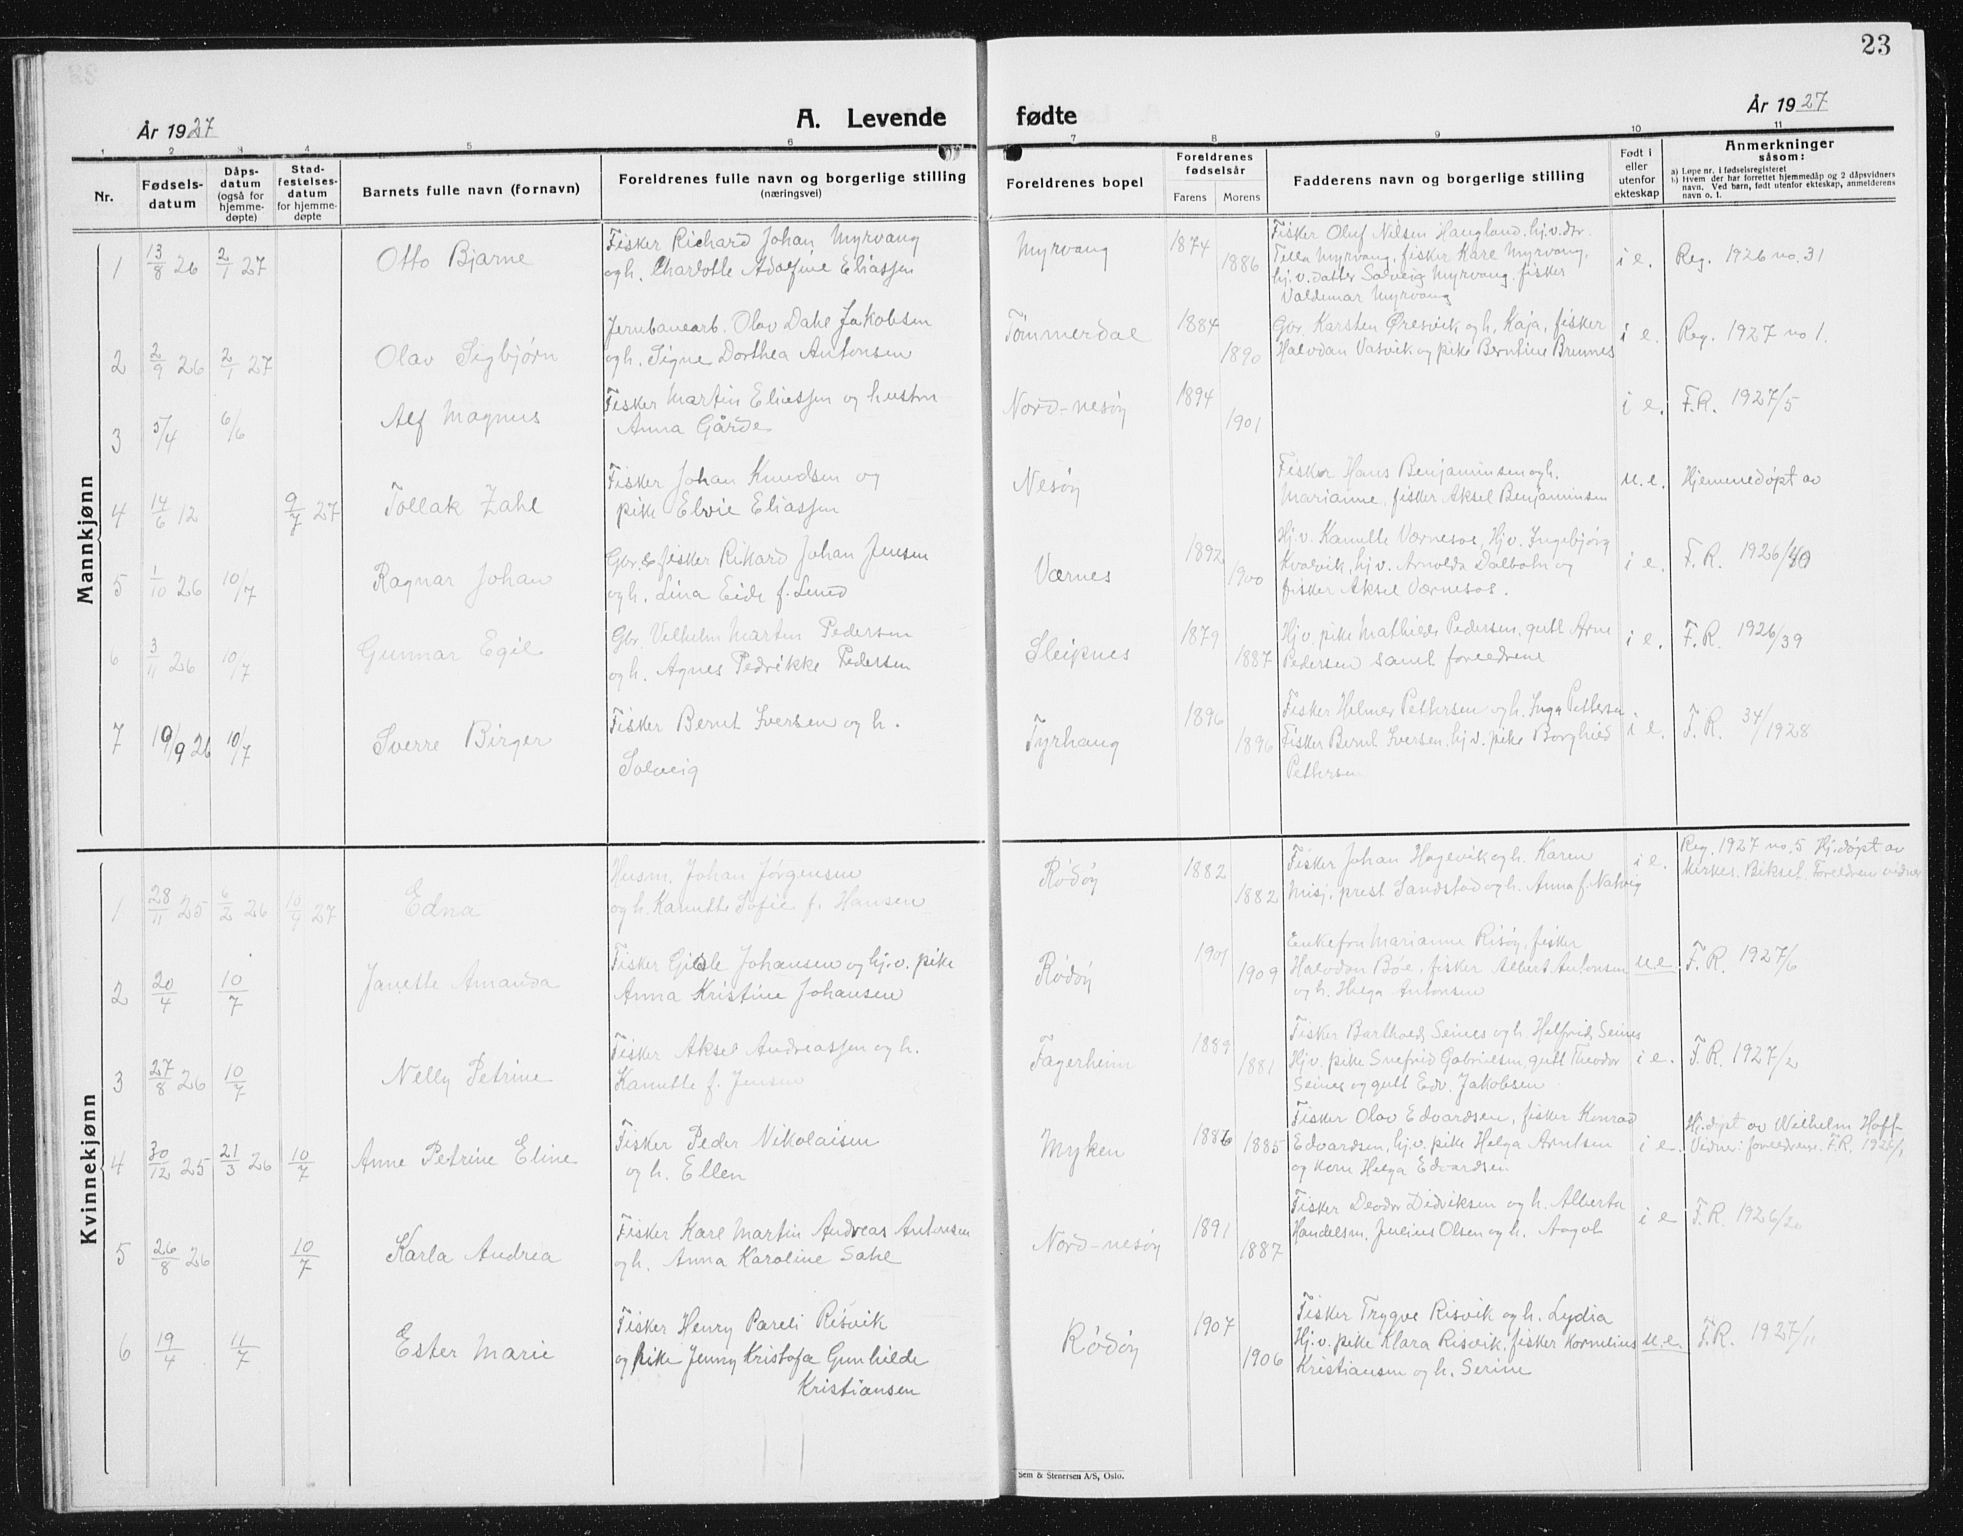 23
År 1927
A. Levende fødte
År 1927
1 2 3 4 5 6 7 8 9 10 11
Nr.
Fødsels-
datum
Dåps-
datum
(også for
hjemme-
døpte)
Stad-
festelses-
datum
for hjemme-
døpte
Barnets fulle navn (fornavn)
Foreldrenes fulle navn og borgerlige stilling
(næringsvei)
Foreldrenes bopel
Foreldrenes
fødselsår
Farens Morens
Fadderens navn og borgerlige stilling
Født i
eller
utenfor
ekteskap
Anmerkninger
såsom:
a) Løpe nr. i fødselsregisteret
b) Hvem der har forrettet hjemmedåp og 2 dåpsvidners
navn. Ved barn, født utenfor ekteskap, anmelderens
navn o. l.
Mannkjønn
1 13/8 26 2/1 27 Otto Bjarne
Fisker Richard Johan Myrvang
og h. Charlotte Adolfine Eliassen
Myrvang 1874 1886
Fisker Oluf Nilsen Haugland, hj.v. dtr.
Tilla Myrvang, fisker Kare Myrvang,
hj.v. datter Solveig Myrvang, fisker
Valdemar Myrvang
i e. Reg. 1926 no. 31
2 2/9 26 2/1 27 Olav Sigbjørn
Jernbanearb. Olav Dahl Jakobsen
og h. Signe Dorthea Antonsen
Tømmerdal 1884 1890
Gbr. Karsten Øresvik og h. Kaja, fisker
Halvdan Vasvik og pike Berntine Brunes
i e. Reg. 1927 no 1.
3 5/4 6/6 Alf Magnus
Fisker Martin Eliassen og hustru
Anna Gårde
Nord-nesøy 1894 1901
i e. F.R. 1927/5
4 14/6 12 9/7 27 Tollak Zahl
Fisker Johan Knudsen og
pike Elvie Eliassen
Nesøy
Fisker Hans Benjaminsen og h.
Marianne, fisker Aksel Benjaminsen
u.e. Hjemmedøpt av
5 1/10 26 10/7 Ragnar Johan
Gbr. & fisker Rikard Johan Jensen
og h. Lina Eide f. Lund
Værnes 1892 1900
Hj.v. Kamille Værnesos, Hj.v. Ingebjørg
Kvalvik, hj.v. Arnolda Dalbohn og
fisker Aksel Værnesos.
i e. F.R. 1926/40
6 3/11 26 10/7 Gunnar Egil
Gbr. Vilhelm Martin Pedersen
og h. Agnes Pedrikke Pedersen
Sleipnes 1879 1887
Hj.v. pike Mathilde Pedersen, gutt Arne
Pedersen samt foreldrene
i e. F.R. 1926/39
7 19/9 26 10/7 Sverre Birger
Fisker Bernt Iversen og h.
Solveig
Tyrhaug 1896 1896
Fisker Helmer Pettersen og h. Inga Pettersen
Fisker Bernt Iversen, hj.v. pike Borghild
Pettersen
i e. F.R. 34/1928
Kvinnekjønn
1 28/11 25 6/2 26 10/9 27 Edna
Husm. Johan Jørgensen
og h. Kamitte Sofie f. Hansen
Rödöy 1882 1882
Fisker Johan Hagevik og h. Karen
Misj. prest Sandstad og h. Anna f. Natvig
i e.
Reg. 1927 no. 5 Hj.døpt av
Kirkes. Biksel. Foreldrene vidner
2 20/4 10/7 Janette Amanda
Fisker Gisle Johansen og hj.v. pike
Anna Kristine Johansen
Rödöy 1901 1909
Enkefru Marianne Risøy, fisker
Halvdan Bøe, fisker Albert Antonsen
og h. Helga Antonsen
u.e F.R. 1927/6
3 27/8 26 10/7 Nelly Petrine
Fisker Aksel Andreassen og h.
Kamitte f. Jensen
Fagerheim 1889 1881
Fisker Barthold Seines og h. Helfrid Seines
Hj.v. pike Snefrid Gabrielsen, gutt Theodor
Seines og gutt Edv. Jakobsen
i e. F.R. 1927/2
4 30/12 25 21/3 26 10/7 Anne Petrine Eline
Fisker Peder Nikolaisen
og h. Ellen
Myken 1886 1885
Fisker Olav Edvardsen, fisker Konrad
Edvardsen, hj.v. pike Helga Arntsen
og kone Helga Edvardsen
i e.
Hj.døpt av Wilhelm Hoff
Vidner: foreldrene. F.R. 1926/1
5 26/8 26 10/7 Karla Andrea
Fisker Karl Martin Andreas Antonsen
og h. Anna Karoline Sahl
Nord-nesøy 1891 1887
Fisker Deodor Didriksen og h. Alberta
Handelsm. Julius Olsen og h. Aagot
i e F.R. 1926/20
6 19/4 11/7 Ester Marie
Fisker Henry Pareli Risvik
og pike Jenny Kristofa Gunhilde
Kristiansen
Rödöy 1907 1906
Fisker Trygve Risvik og h. Lydia
Hj.v. pike Klara Risvik, fisker Kornelius
Kristiansen og h. Serine
u.e. F.R. 1927/11
Sem & Stenersen A/S, Oslo.